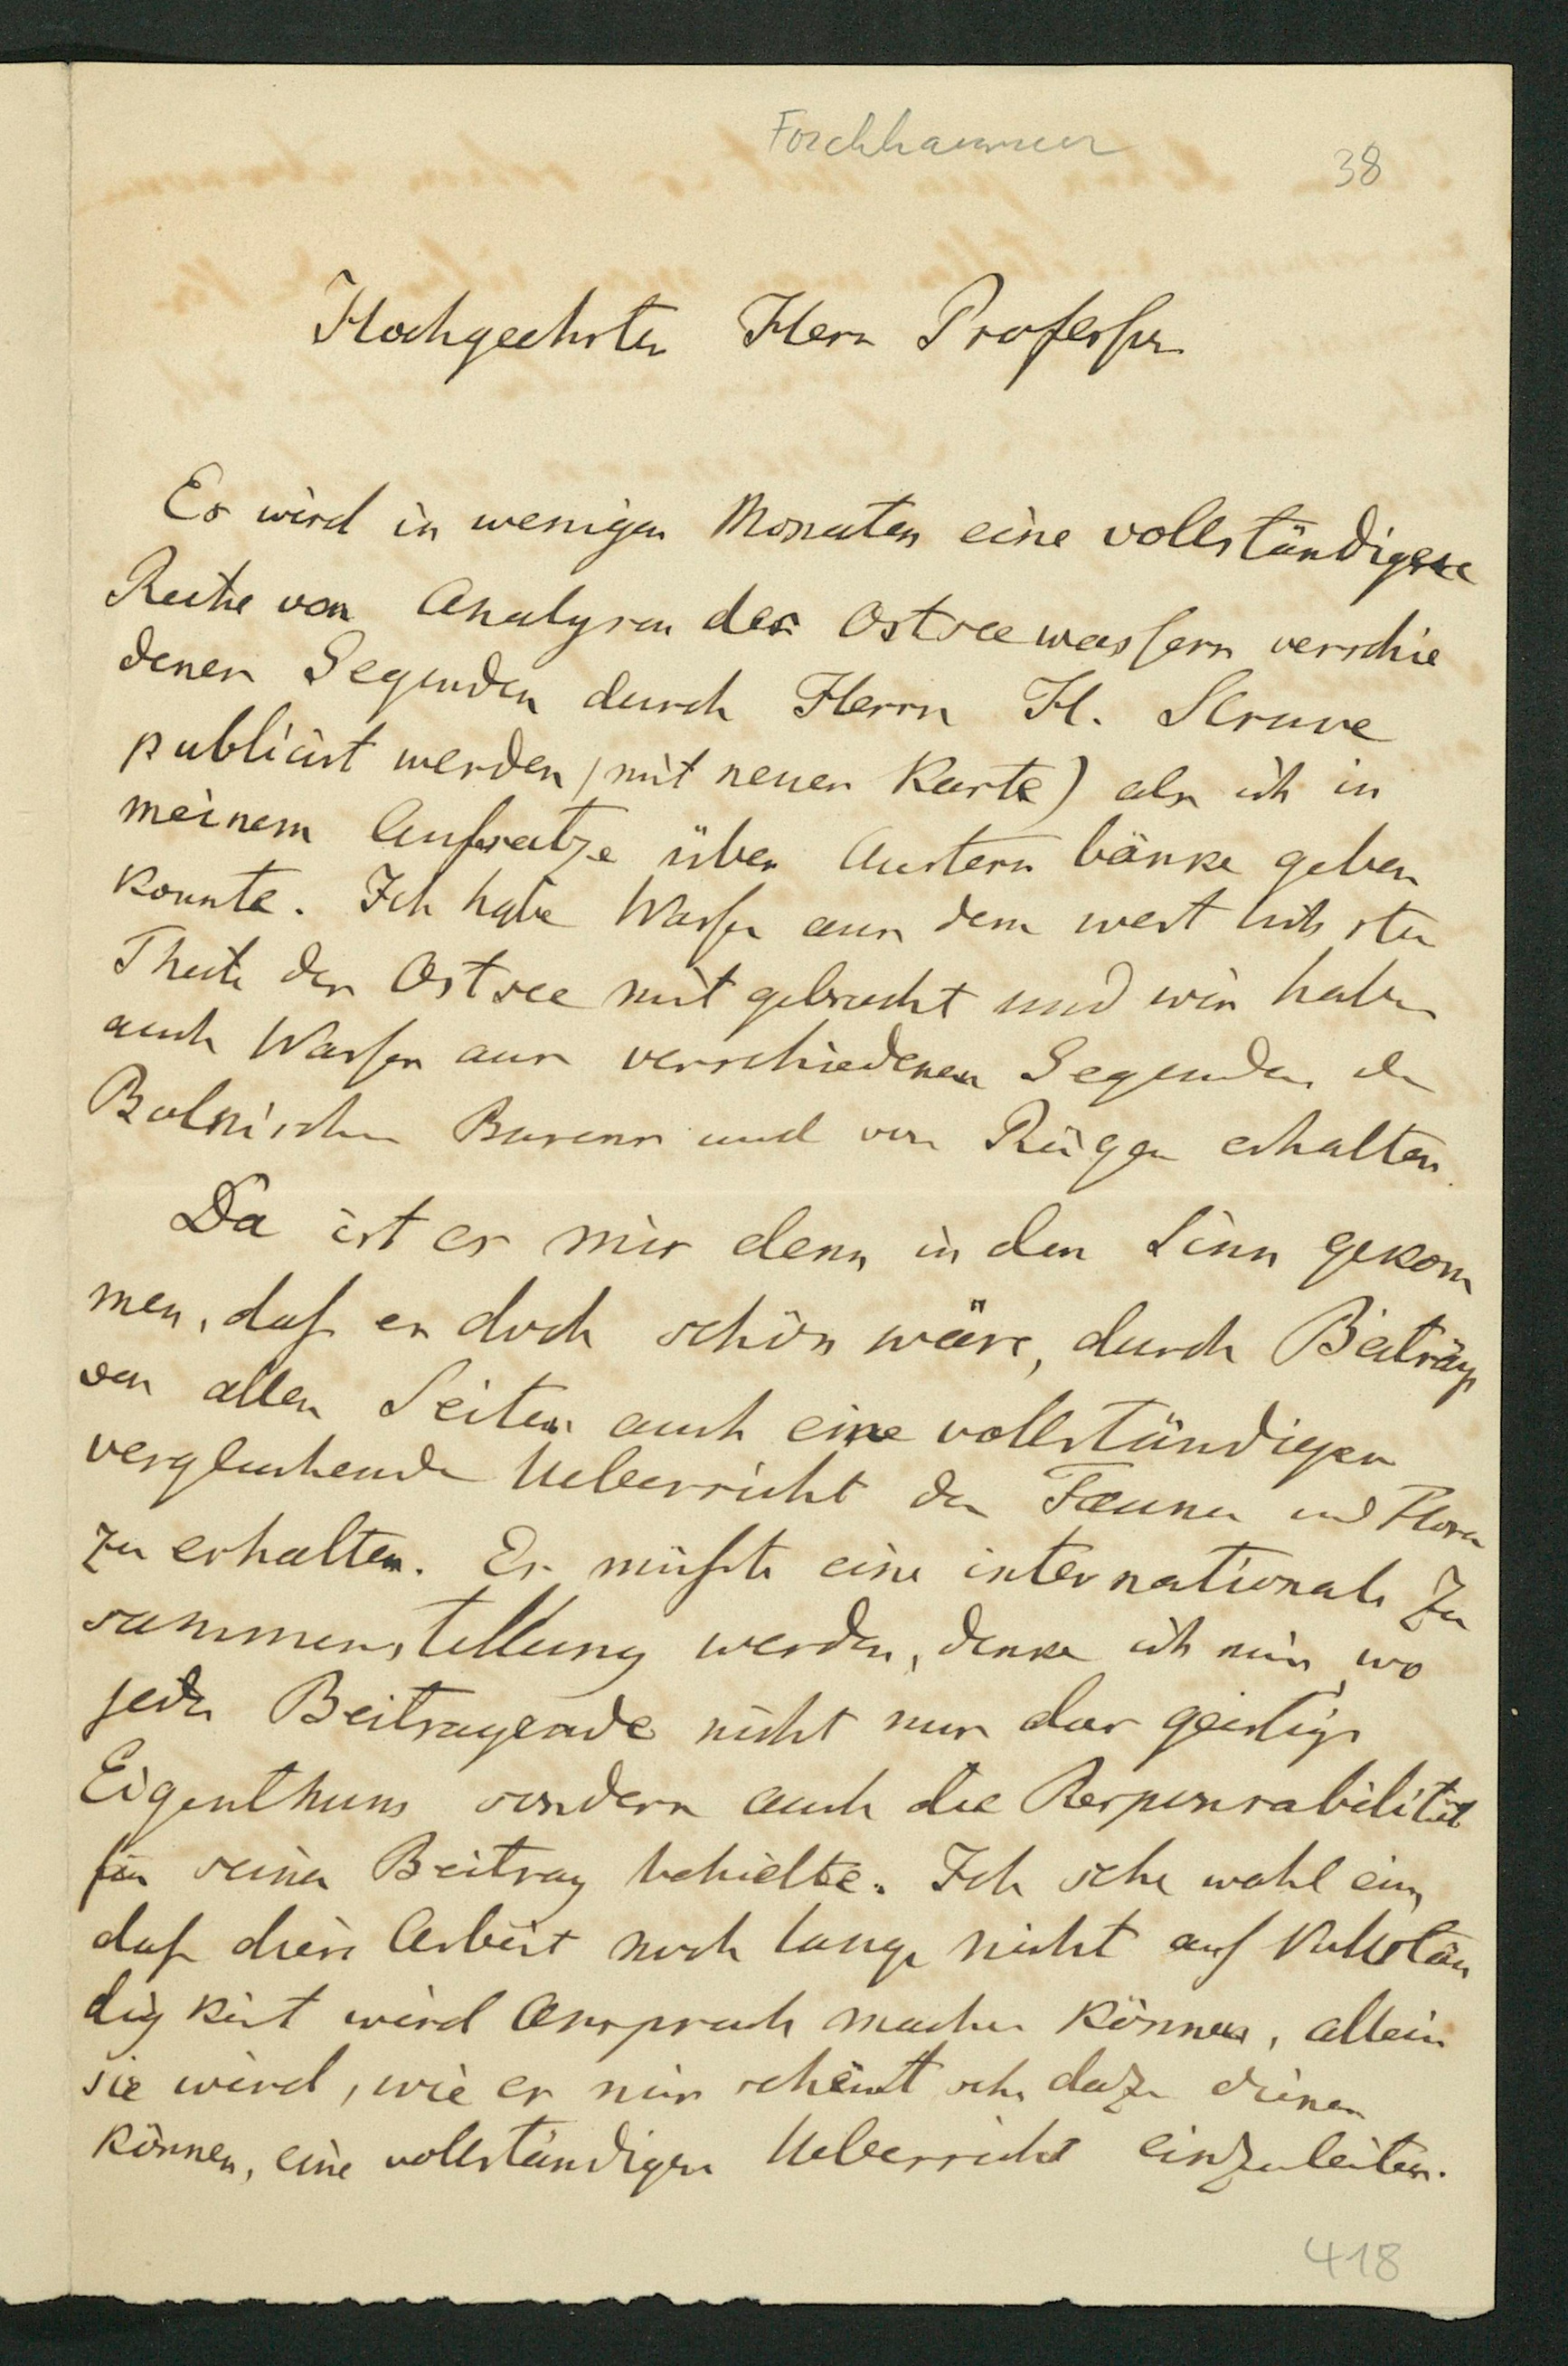 Forchhammer
38
Hochgeehrter Herr Professor
Es wird in wenigen Monaten eine vollständigere
Reihe von Analysen des Ostseewassers verschie
dener Gegenden durch Herrn H. Struve
publicirt werden (mit neuer Karte) als ich in
meinem Aufsatze über Austernbänke geben
konnte. Ich habe Wasser aus dem westlichsten
Theile der Ostsee mitgebracht und wir haben
auch Wasser aus verschiedenen Gegenden des
Busens und von Rügen erhalten.
Da ist es mir denn in den Sinn gekom
men, daß es doch schön wäre, durch Beiträge
von allen Seiten auch eine vollständigere
vergleichende Uebersicht der Fauna und Flora
zu erhalten. Es müßte eine internationale Zu
sammenstellung werden, denke ich mir, wo
jeder Beitragende nicht nur das geistige
Eigenthum sondern auch die Responsabilität
für seinen Beitrag behielte. Ich sehe wohl ein,
daß diese Arbeit noch lange nicht auf Vollstän
digkeit wird Anspruch machen können, allein
sie wird, wie es mir scheint sehr dazu dienen
können, eine vollständigere Uebersicht einzuleiten.
418